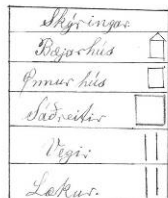 Skýringar
Bæjarhús
Önnur hús
Sáðreitir
Vegir
Lækur.